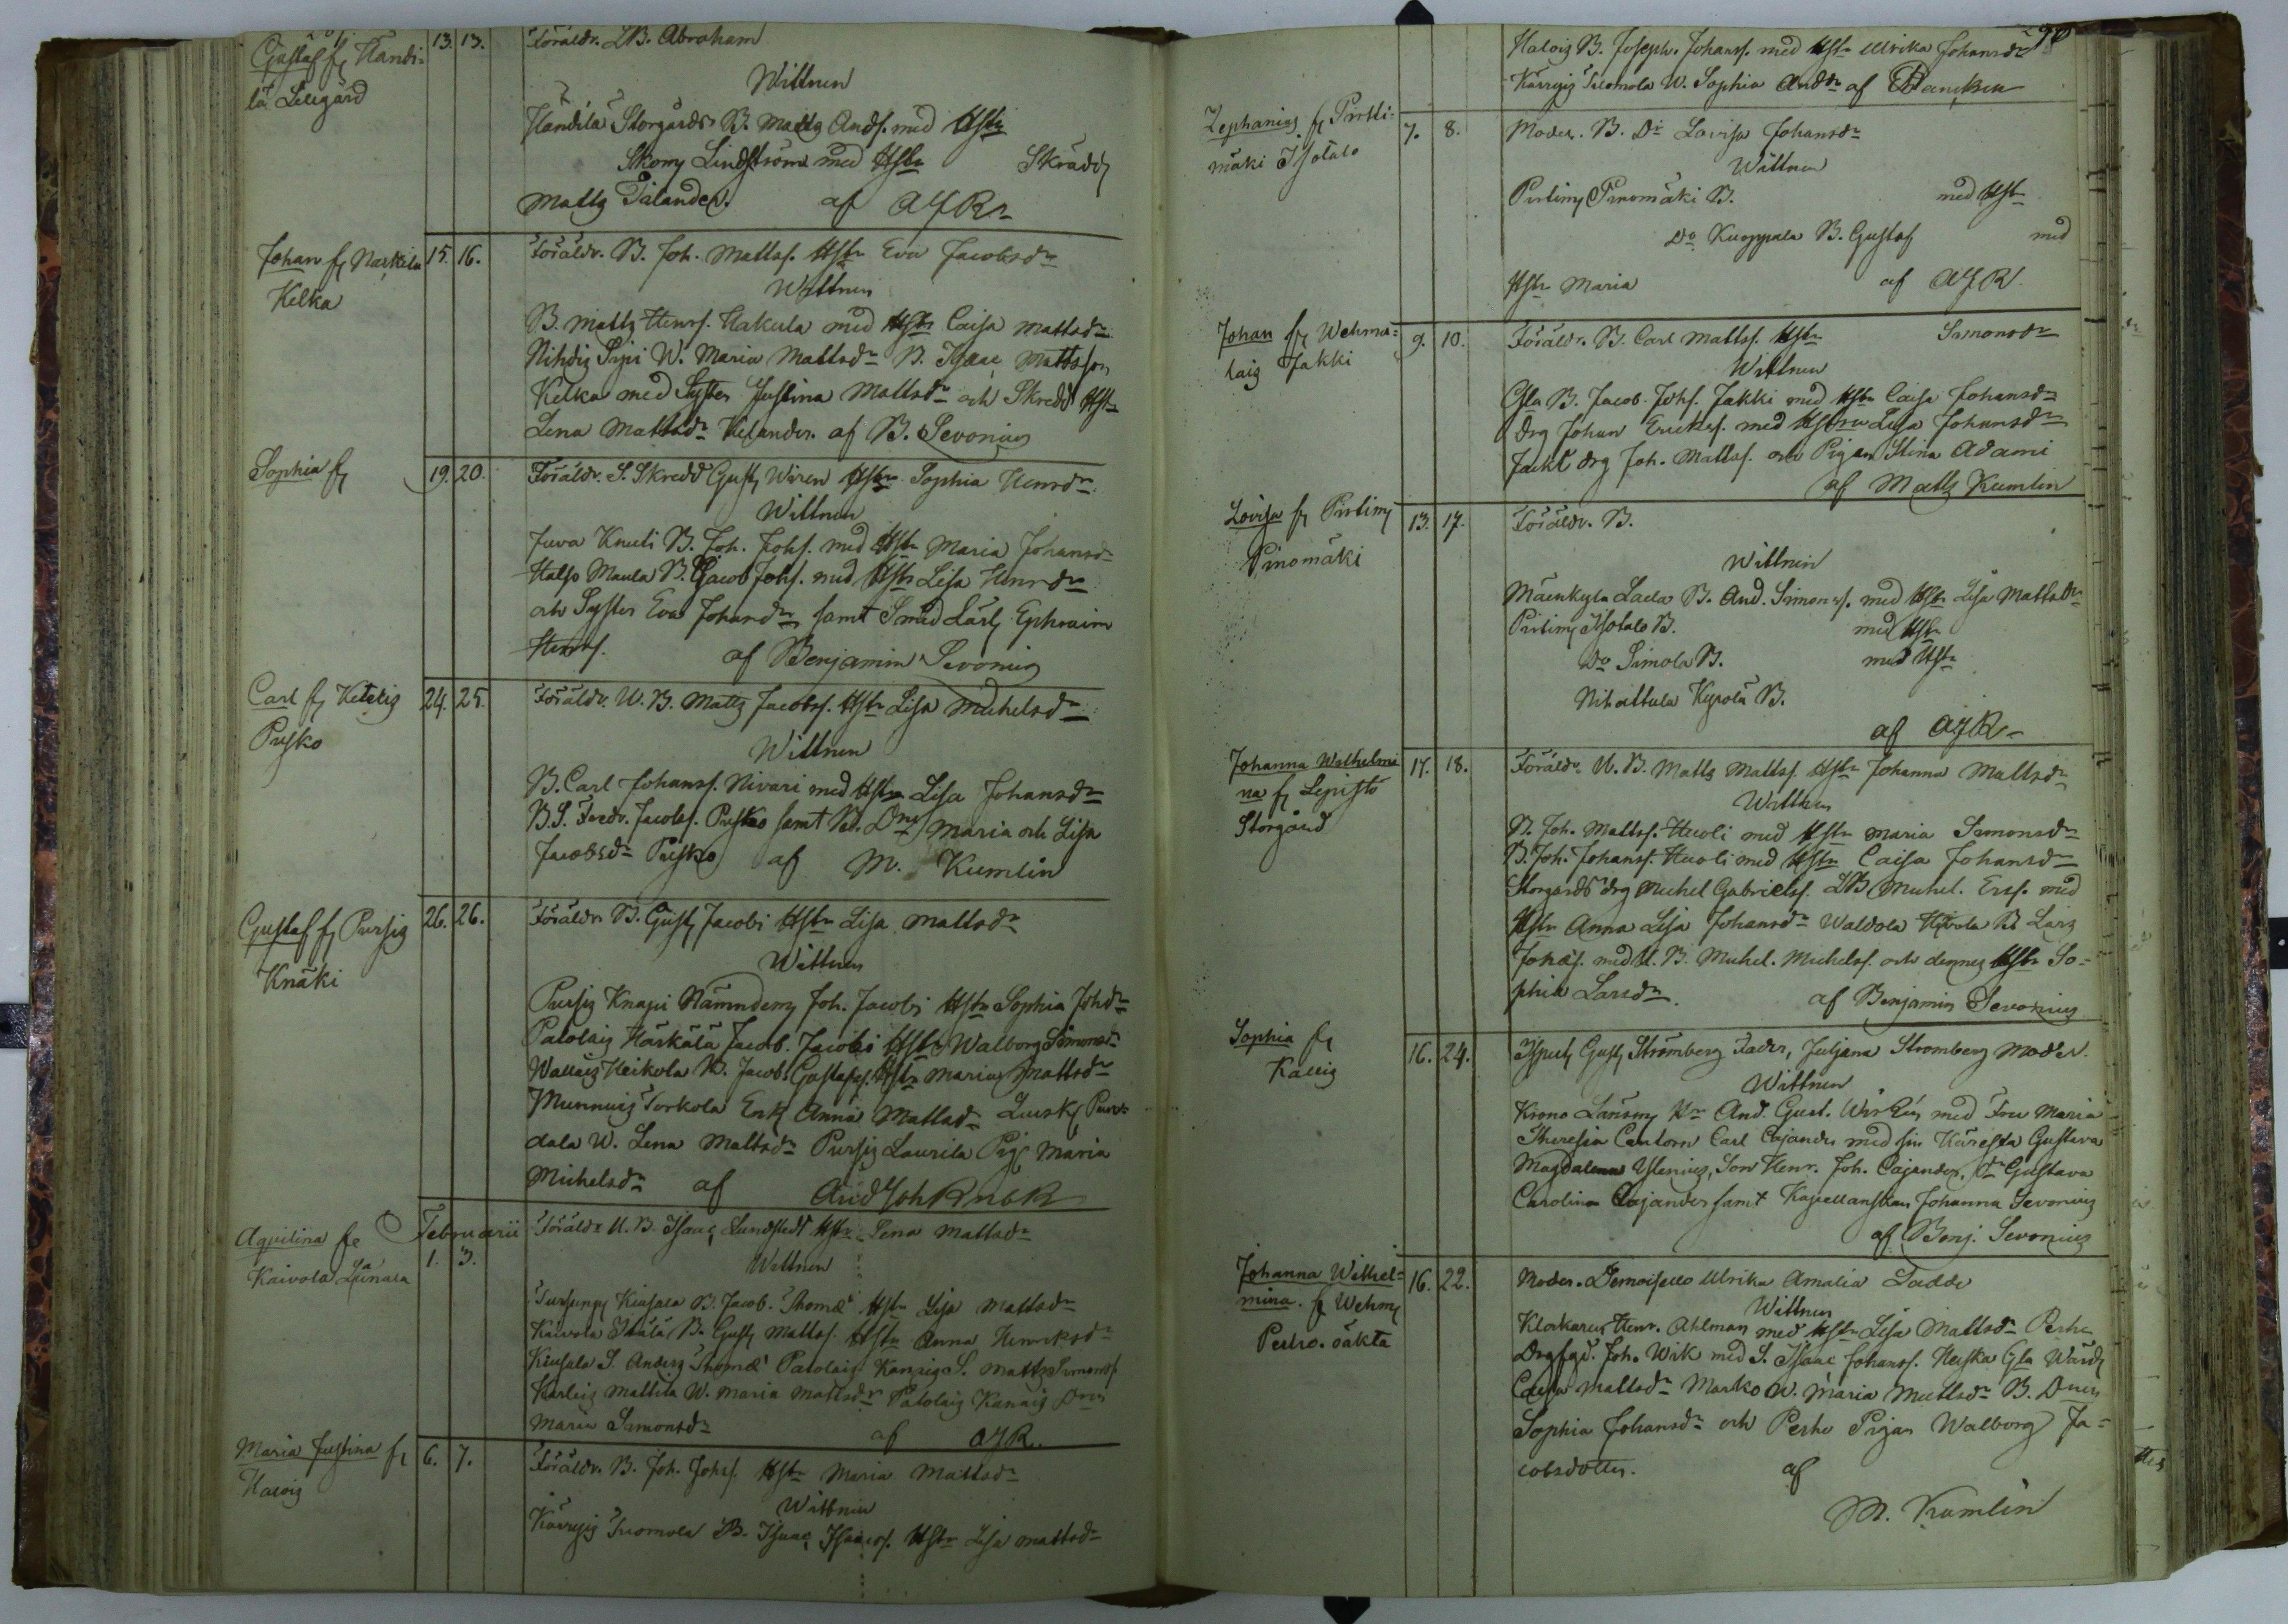 Gustaf f. Handi-
lä Lillgård
13. 13.
Föräldr. LB. Abraham
Wittnen
Handila Storgårds B. Matts Ands. med Hstr
Skom. Lindström med Hstr Skrädd.
Matts Talander. af AJR
Johan f. Narkila
Kelka
15. 16.
Föräldr. B. Joh. Matts. Hstr Eva Jacobsdr
Wittnen
B. Matts Henrs. Hakula med Hstr Caisa Mattsdr
W. Maria Mattsdr B. Isaac Mattsson
Kelka med Syster Justina Mattsdr och Skredd Hstr
Lena Mattsdr Kelander. af B. Sevonius
Sophia f.
19. 20.
Föräldr. S. Skredd Gust. Wiren Hstr Sophia Henrdr
Wittnen
Juva Knuti B. Joh. Johs. med Hstr Maria Johansdr
Halso Maula B. Jacob Johs. med Hstr Lisa Henrdr
och Syster Eva Johansdr samt Smed Lärl. Ephraim
Henrs. af Benjamin Sevonius
Carl f. Ketelis
Pusko
24. 25.
Föräldr. U. B. Matts Jacobss. Hstr Lisa Michelsdr
Wittnen
B. Carl Johanss. Nivari med Hstr Lisa Johansdr
B.S. Fredr. Jacobs. Pusko samt B. Dr Maria och Lisa
Jacobsdr Pusko af M. Kumlin
Gustaf f. Pursis
Knäki
26. 26.
Föräldr B. Gust. Jacobi Hstr Lisa Mattsdr
Wittnen
Pursis Knapi Nämndem. Joh. Jacobi Hstr Sophia Johdr
Patolais Härkälä Jacob. Jacobi Hstr Walborg Simonsdr
Wallais Heikola B. Jacob Gustafss. Hstr Maria Mattsdr
Munnuis Torkola Enk. Anna Mattsdr
dala W. Lena Mattsdr Pursis Laurila Pig. Maria
Michelsdr af
Februarii
Aqvilina f.
Kaivola
1. 3.
Föräldr U. B. Isaac Lundstedt Hstr Lena Mattsdr
Wittnen
B. Jacob. Thomæ Hstr Lisa Mattsdr
Kaivola B. Gust. Matts. Hstr Anna Henriksdr
S. Anders Thomæ Patolais S. Matts Simons.
Karlais Mattila W. Maria Mattsdr Patolais
Maria Simonsdr af AJR.
Maria Justina f.
Halois
6. 7.
Föräldr. B. Joh. Johss. Hstr Maria Mattsdr
Wittnen
Tuomola B. Isaac Isaacs. Hstr Lisa Mattsdr
90
Halois B. Joseph. Johanss. med Hstr Ulrika Johansdr
Tuomola W. Sophia Anddr af
Zephanias f. Pirtti-
mäki Isotalo
7. 8.
Moder. B. Dr Lovisa Johansdr
Wittnen
Pirtim. Pinomäki B. med Hstr
Do Kuoppala B. Gustaf med
Hstr Maria af AJR.
Johan f. Wehma-
lais Jakki
9. 10.
Föräldr. B. Carl Matts. Hstr Simonsdr
Wittnen
Gla B. Jacob. Johs. Jakki med Hstr Caisa Johansdr
Drg Johan Ericks. med Hstru Lisa Johansdr
Jakk drg Joh. Matts. och Pigan Stina Adami
af Matts Kumlin
Lovisa f. Pirtim.
Pinomäki
13. 17.
Föräldr. B.
Wittnen
Lada B. And. Simons. med Hstr Lisa Mattsdr
Pirtim. Isotalo B. med Hstr
Do Simola B. med Hstr
Kyrölä B.
af AJR
Johanna Wilhelmi
na f. Lepistö
Storgård
17. 18.
Föräldr U. B. Matts Matts. Hstr Johanna Mattsdr
Wittnen
B. Joh. Matts. Huoli med Hstr Maria Simonsdr
B. Joh. Johans. Huoli med Hstr Caisa Johansdr
Storgårds drg Michel Gabrielss. LB. Michel. Ers. med
Hstr Anna Lisa Johansdr B. Lars
Johs. med U. B. Michel. Michelss. och dennes Hstr So-
phia Larsdr. af Benjamin Sevonius
Sophia f.
Kallis
16. 24.
Gust. Strömberg Fader, Juljana Strömberg Moder.
Wittnen
Krono Länsm. Hr And. Gust. med Fru Maria
Theresia Cantorn Carl Cajander med sin Käresta Gustava
Magdalena Ylenius, Son Henr. Joh. Cajander, Dr Gustava
Carolina Cajander samt Kapellanskan Johanna Sevonius
af Benj. Sevonius
Johanna Wilhel-
mina. f. Wehm.
Perho. oäkta
16. 22.
Moder. Demoiselle Ulrika Amalia Tadde
Wittnen
Klockaren Henr. Ahlman med Hstr Lisa Mattsdr Perho
Joh. Wik med S. Isaac Johanss. Heiska Gla
Caisa Mattsdr Marko W. Maria Mattsdr B. Dr
Sophia Johansdr och Perho Pigan Walborg Ja-
cobsdotter. af
M. Kumlin